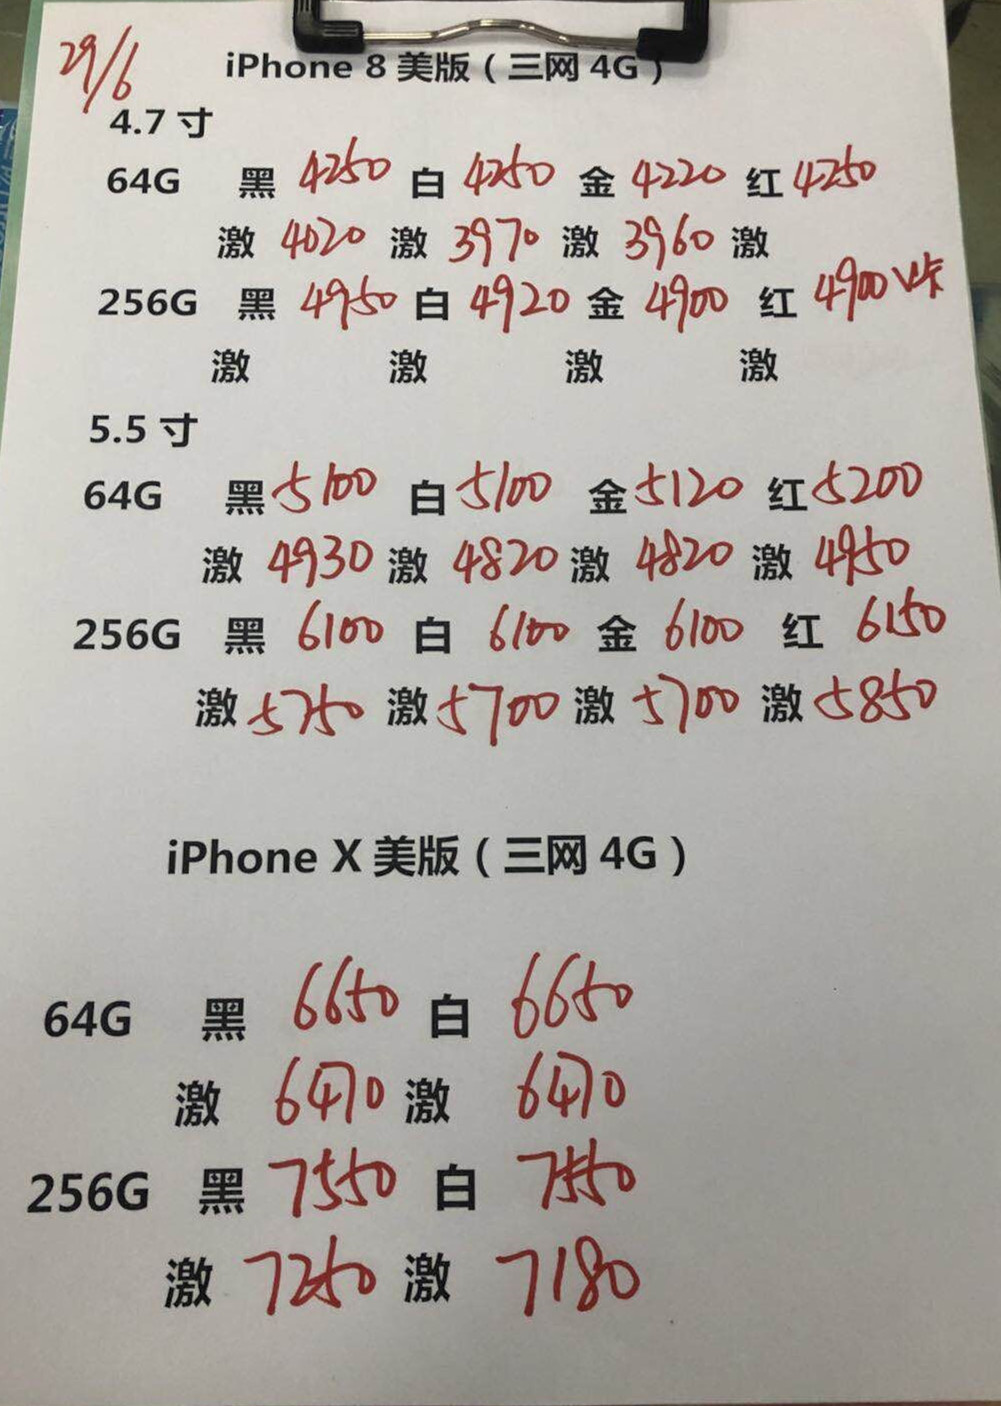 29/6
iPhone 8 美版（三网 4G）
4.7 寸
64G 黑 4250 白 4250 金 4220 红 4250
激 4020 激 3970 激 3960 激
256G 黑 4950 白 4920 金 4900 红 4900 V卡
激 激 激 激
5.5 寸
64G 黑 5100 白 5100 金 5120 红 5200
激 4930 激 4820 激 4820 激 4950
256G 黑 6100 白 6100 金 6100 红 6150
激 5750 激 5700 激 5700 激 5850
iPhone X 美版（三网 4G）
64G 黑 6650 白 6650
激 6470 激 6470
256G 黑 7550 白 7550
激 7250 激 7180